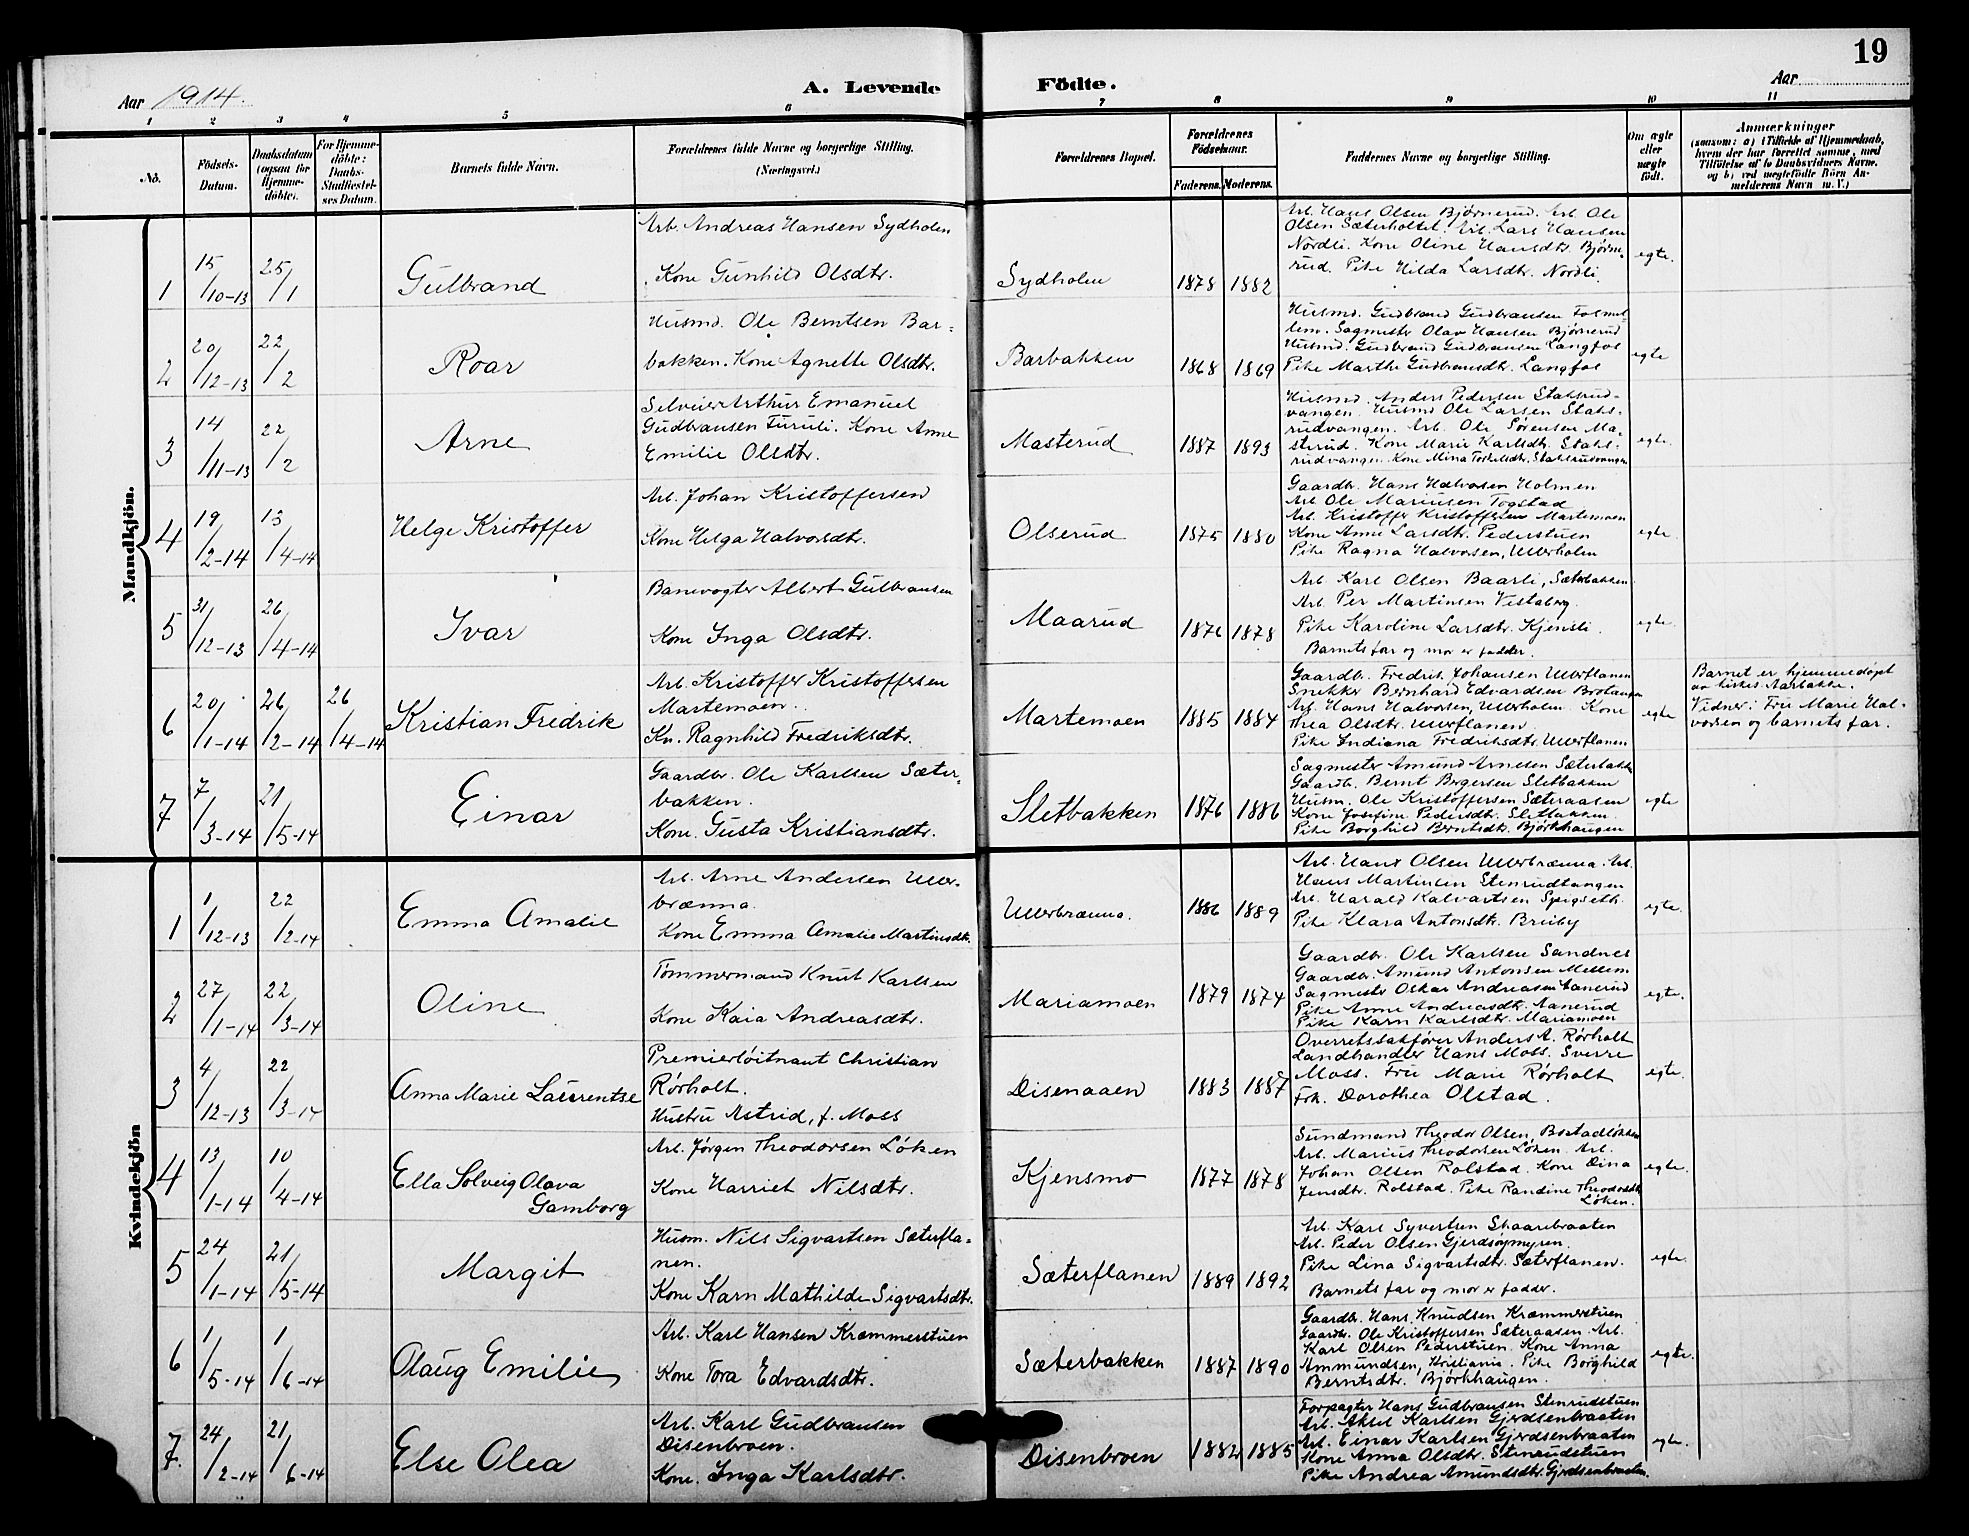 19
Aar 1914.
A. Levende Födte.
Aar
1 2 3 4 5 6 7 8 9 10 11
No.
Födsels-
Datum.
Daabsdatum
(ogsaa for
Hjemme-
döbte).
For Hjemme-
döbte:
Daabs-
Stadfæstel-
ses Datum.
Barnets fulde Navn.
Forældrenes fulde Navne og borgerlige Stilling.
(Næringsvei.)
Forældrenes Bopæl.
Forældrenes
Födselsaar.
Faderens. Moderens.
Faddernes Navne og borgerlige Stilling.
Om ægte
eller
uægte
födt.
Anmærkninger
(saasom: a) i Tilfælde af Hjemmedaab,
hvem der har forrettet samme, med
Tilföielse af to Daabsvidners Navne.
og b) ved uægtefödte Börn An-
melderens Navn m. V.)
Mandkjön.
1
15/10-13
25/1
Gulbrand
Arb. Andreas Hansen Sydholen
Kone Gunhild Olsdtr.
Sydholen
1878 1882
Arb. Hans Olsen Bjørnerud. Arb. Ole
Olsen Sæterholtet. Arb. Lars Hansen
Nordli. Kone Oline Hansdtr. Bjørne-
rud. Pike Hilda Larsdtr. Nordli
egte.
2
20/12-13
22/2
Roar
Husmd. Ole Berntsen Bar-
bakken. Kone Agnette Olsdtr.
Barbakken
1868 1869
Husmd. Gudbrand Gudbransen
Sagmester Olav Hansen Bjørnerud
Husmd. Gudbrand Gudbransen Langfos
Pike Marthe Gudbrandsdtr. Langfos
egte
3
14/11-13
22/2
Arne
Selveier Arthur Emanuel
Gudbransen Furuli. Kone Anne
Emilie Olsdtr.
Masterud
1887 1893
Husmd. Anders Pedersen Stalsrud-
vangen. Husmd Ole Larsen Stals-
rudvangen. Arb. Ole Sørensen Ma-
sterud. Kone Marie Karlsdtr. Stals-
rudvangen. Kone Mina Torkildtr. Stalsrudvangen
egte.
4
19/2-14
13/4-14
Helge Kristoffer
Arb. Johan Kristoffersen
Kone Helga Halvorsdtr.
Olserud
1875 1880
Gaardbr. Hans Halvorsen Holmen
Arb. Ole Mariusen Togstad
Arb. Kristoffer Kristoffersen Martemoen
Kone Anne Larsdtr. Pederstuen
Pike Ragna Halvorsen, Ullerholen
egte.
5
31/12-13
26/4-14
Ivar
Banevogter Albert Gulbransen
Kone Inga Olsdtr.
Maarud
1876 1878
Arb. Karl Olsen Baarli, Sæterbakken
Arb. Per Martinsen Vestaberg.
Pike Karoline Larsdtr. Kjensli.
Barnets far og mor er fadder.
egte.
6
20/1-14
26/2-14
26/4-14
Kristian Fredrik
Arb. Kristoffer Kristoffersen
Martemoen.
Kn. Ragnhild Fredriksdtr.
Martemoen
1885 1884
Gaardb. Fredrik Johansen Ullerflanen
Snekker Bernhard Edvardsen Brotangen
Arb. Hans Halvorsen, Ullerholm. Kone
Thea Olsdtr. Ullerflanen.
Pike Indiana Fredriksdtr. Ullerflanen
egte
Barnet er hjemmedøpt
av Aarbakke.
Vidner: Fru Marie Hal-
vorsen og barnets far.
7
7/3-14
21/5-14
Einar
Gaardbr. Ole Karlsen Sæter-
bakken.
Kone. Gusta Kristiansdtr.
Sletbakken
1876 1886
Sagmester Amund Arnesen Sæterbakk
Gaardb. Bernt Bergersen Sletbakken
Husm. Ole Kristoffersen Sæteraasen
Kone Josefine Pedersdtr. Sletbakken.
Pike Borghild Berntsdtr. Bjørkhaugen
egte
Kvindekjön
1
1/12-13
22/2-14
Emma Amalie
Arb. Arne Andersen Uller-
brænna.
Kone Emma Amalie Martinsdtr.
Ullerbrænna.
1886 1889
Arb. Hans Olsen Ullerbrænna. Arb.
Hans Martinsen Stenrudtangen
Arb. Harald Kalvartsen Spigseth.
Pike Klara Antonsdtr. Bruby
egte.
2
27/1-14
22/3-14
Oline
Tømmermand Knut Karlsen
Kone Kaia Andreasdtr.
Mariamoen
1879 1874
Gaardbr. Ole Karlsen Sandnes
Gaardbr. Amund Antonsen Mellem
Sagmester Oskar Andreasen Aanerud
Pike Anne Andreasdtr. Aanerud
Pike Karn Karlsdtr. Mariamoen
egte.
3
4/12-13
22/3-14
Anna Marie Laurentse
Premierløitnant Christian
Rørholt.
Hustru Astrid, f. Moss
Disenaaen
1883 1887
Overretssakfører Anders A. Rørholt
Landhandler Hans Moss. Sverre
Moss. Fru Marie Rørholt
Frk. Dorothea Olstad.
egte.
4
13/1-14
10/4-14
Ella Solveig Olava
Gamborg
Arb. Jørgen Theodorsen Løken
Kone Harriet Nilsdtr.
Kjensmo
1877 1878
Sundmand Theodor Olsen, Bostadløkken
Arb. Marius Theodorsen Løken. Arb.
Johan Olsen Rolstad. Kone Dina
Jensdtr. Rolstad. Pike Randine Theodorsdtr.
Løken.
egte.
5
24/1-14
21/5-14
Margit
Husm. Nils Sigvartsen Sæterfla-
nen.
Kone Karn Mathilde Sigvartsdtr.
Sæterflanen
1889 1892
Arb. Karl Syvertsen Skaarebraaten
Arb. Peder Olsen Gjerdsøymyren.
Pike Lina Sigvartsdtr. Sæterflanen.
Barnets far og mor er fadder.
egte.
6
1/5-14
1/6-14
Olaug Emilie
Arb. Karl Hansen Kræmmerstuen
Kone Tora Edvardsdtr.
Sæterbakken
1887 1890
Gaardbr. Hans Knudsen Kræmmerstuen
Gaardbr. Ole Kristoffersen Sæteraasen Arb.
Karl Olsen Pederstuen. Kone Anna
Ammundsen, Kristiania. Pike Borghild
Berntsdtr. Bjørkhaugen.
egte.
7.
24/2-14
21/6-14
Else Olea
Arb. Karl Gudbransen
Disenbroen.
Kone. Inga Karlsdtr.
Disenbroen
1882 1885
Forpagter Hans Gudbransen Stenrudstuen
Arb. Aksel Karlsen Gjerdsenbraaten
Arb. Einar Karlsen Gjerdsenbraaten
Kone Anna Olsdtr. Stenrudstuen
Pike Andrea Amundsdtr. Gjerdsenbraaten.
egte.